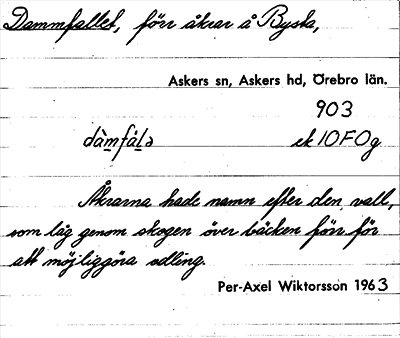 Dammfallet, förr åkrar å Bysta,
Askers sn, Askers hd, Örebro län.
903
dàmfálə ek 10F0g
Åkrarna hade namn efter den vall,
som låg genom skogen över bäcken förr för
att möjliggöra odling.
Per-Axel Wiktorsson 1963